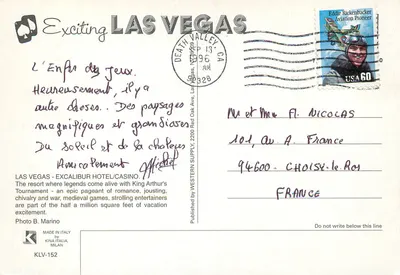 Exciting LAS VEGAS
L'Enfer du jeux.
Heureusement, il y a
autre choses.. Des paysages
magnifiques et grandioses
Du soleil et de la chaleur
Amicalement
LAS VEGAS - EXCALIBUR HOTEL/CASINO.
The resort where legends come alive with King Arthur's
Tournament - an epic pageant of romance, jousting,
chivalry and war, medieval games, strolling entertainers
are part of the half a million square feet of vacation
excitement.
Photo B. Marino
MADE IN ITALY
by
KINA ITALIA
MILAN
KLV-152
Published by WESTERN SUPPLY, 2200 Red Oak Ave, Las Vegas,
DEATH VALLEY, CA
SEP 13
1996
AM
92328
Eddie Rickenbacker
Aviation Pioneer
USA 60
Mr et Mme A. NICOLAS
101, av A. France
94600 - CHOISY-le-Roi
FRANCE
Do not write below this line